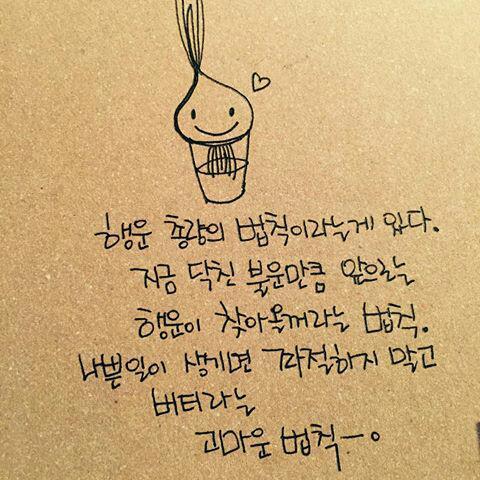 행운 총량의 법칙이라는게 있다.
지금 닥친 불운만큼 앞으로는
행운이 찾아올꺼라는 법칙.
나쁜일이 생기면 좌절하지 말고
버티라는
고마운 법칙ㅡ。